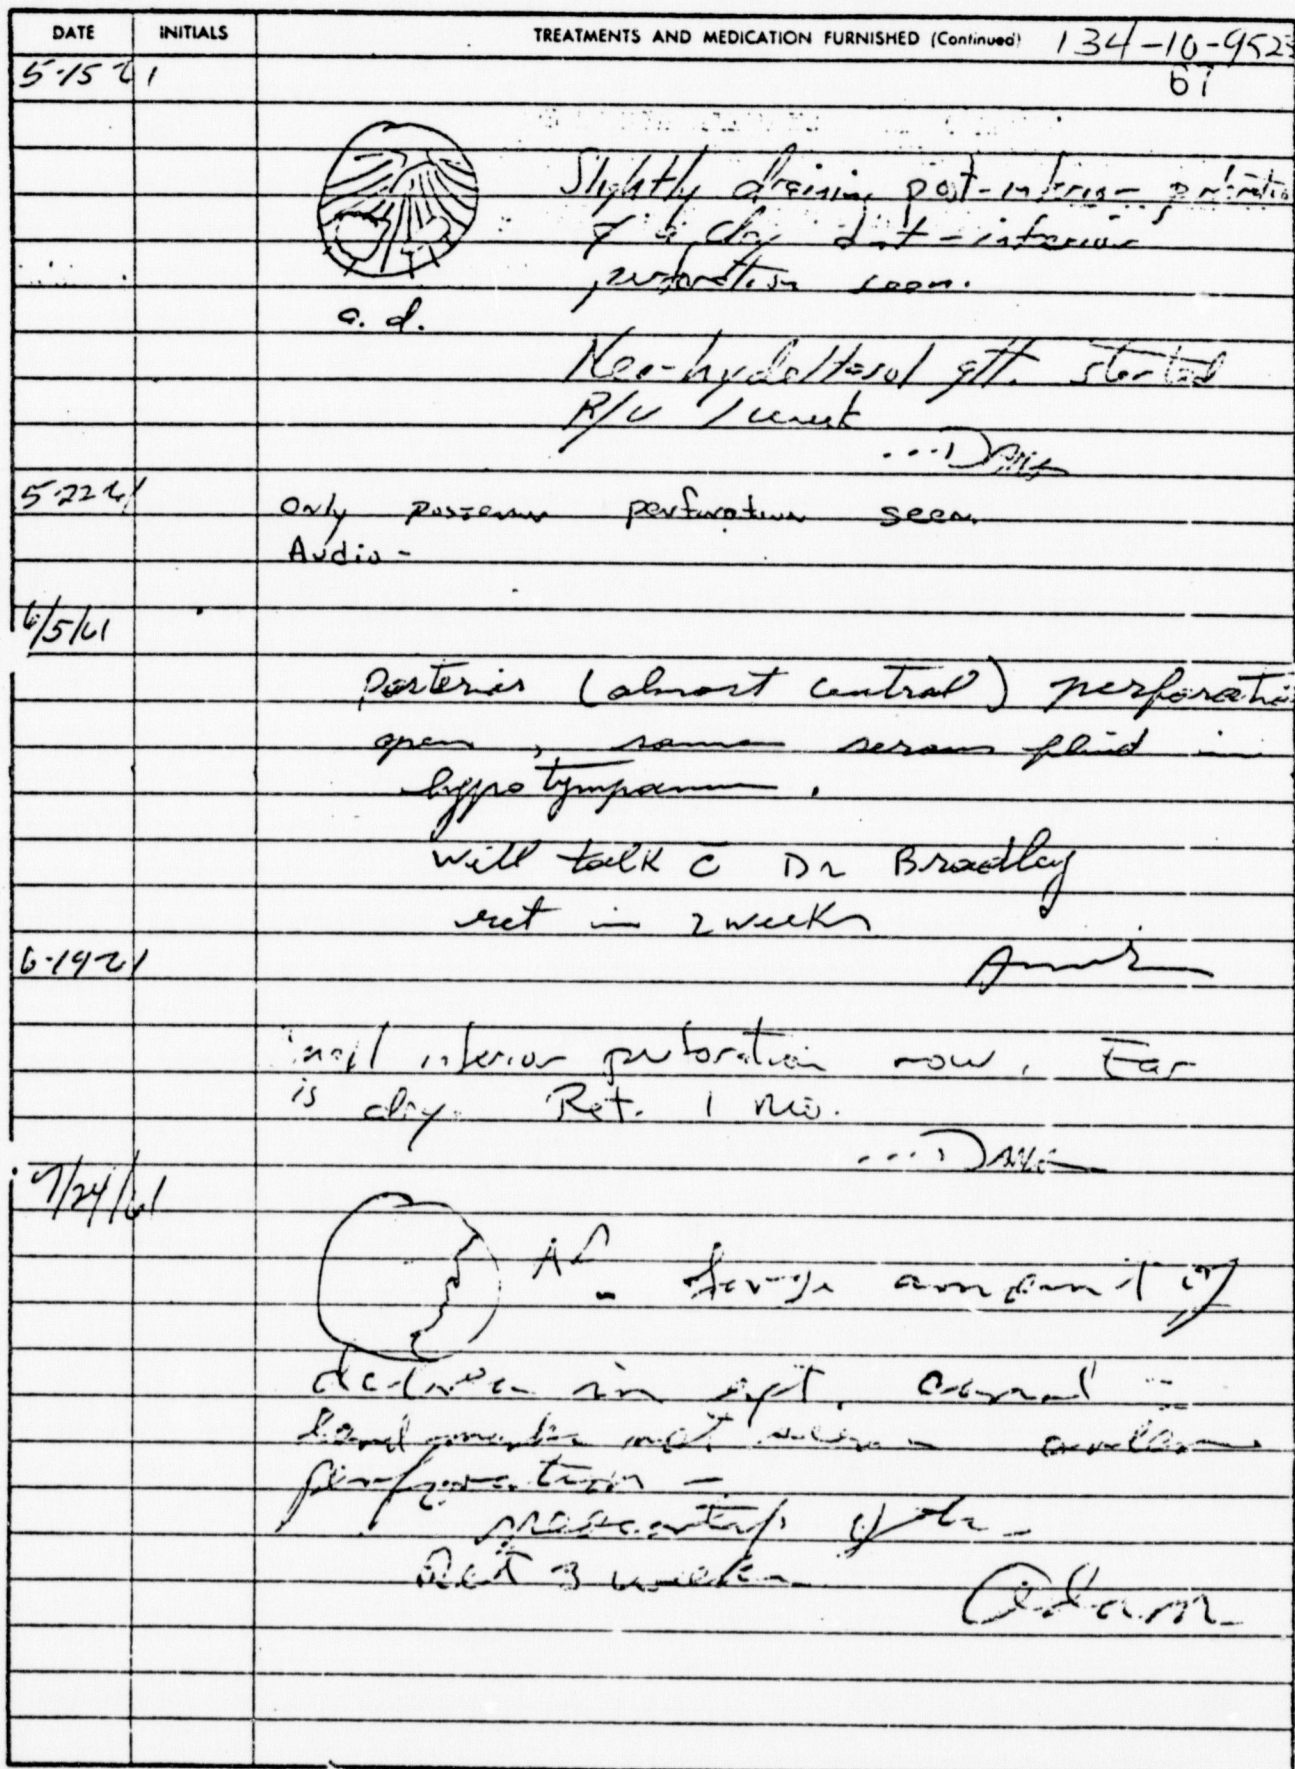 DATE INITIALS TREATMENTS AND MEDICATION FURNISHED (Continued) 134-10-952
61
5-15-61
Slightly draining post-inferior perforation
& a dry ant-inferior
perforation seen.
a. d.
Neo-hydeltasol gtt. started
R/V 1 week
...Davis
5-22-61 Only posterior perforation seen.
Audio -
6/5/61
Posterior (almost central) perforation
open, some serous fluid in
hypotympanum.
Will talk c̄ Dr Bradley
ret in 2 weeks
6-19-61
small inferior perforation now. Ear
is dry. Ret. 1 mo.
...Davis
7/24/61
AD - large amount of
in ext. canal -
landmarks not seen
perforation -
Ret 3 weeks
Adam